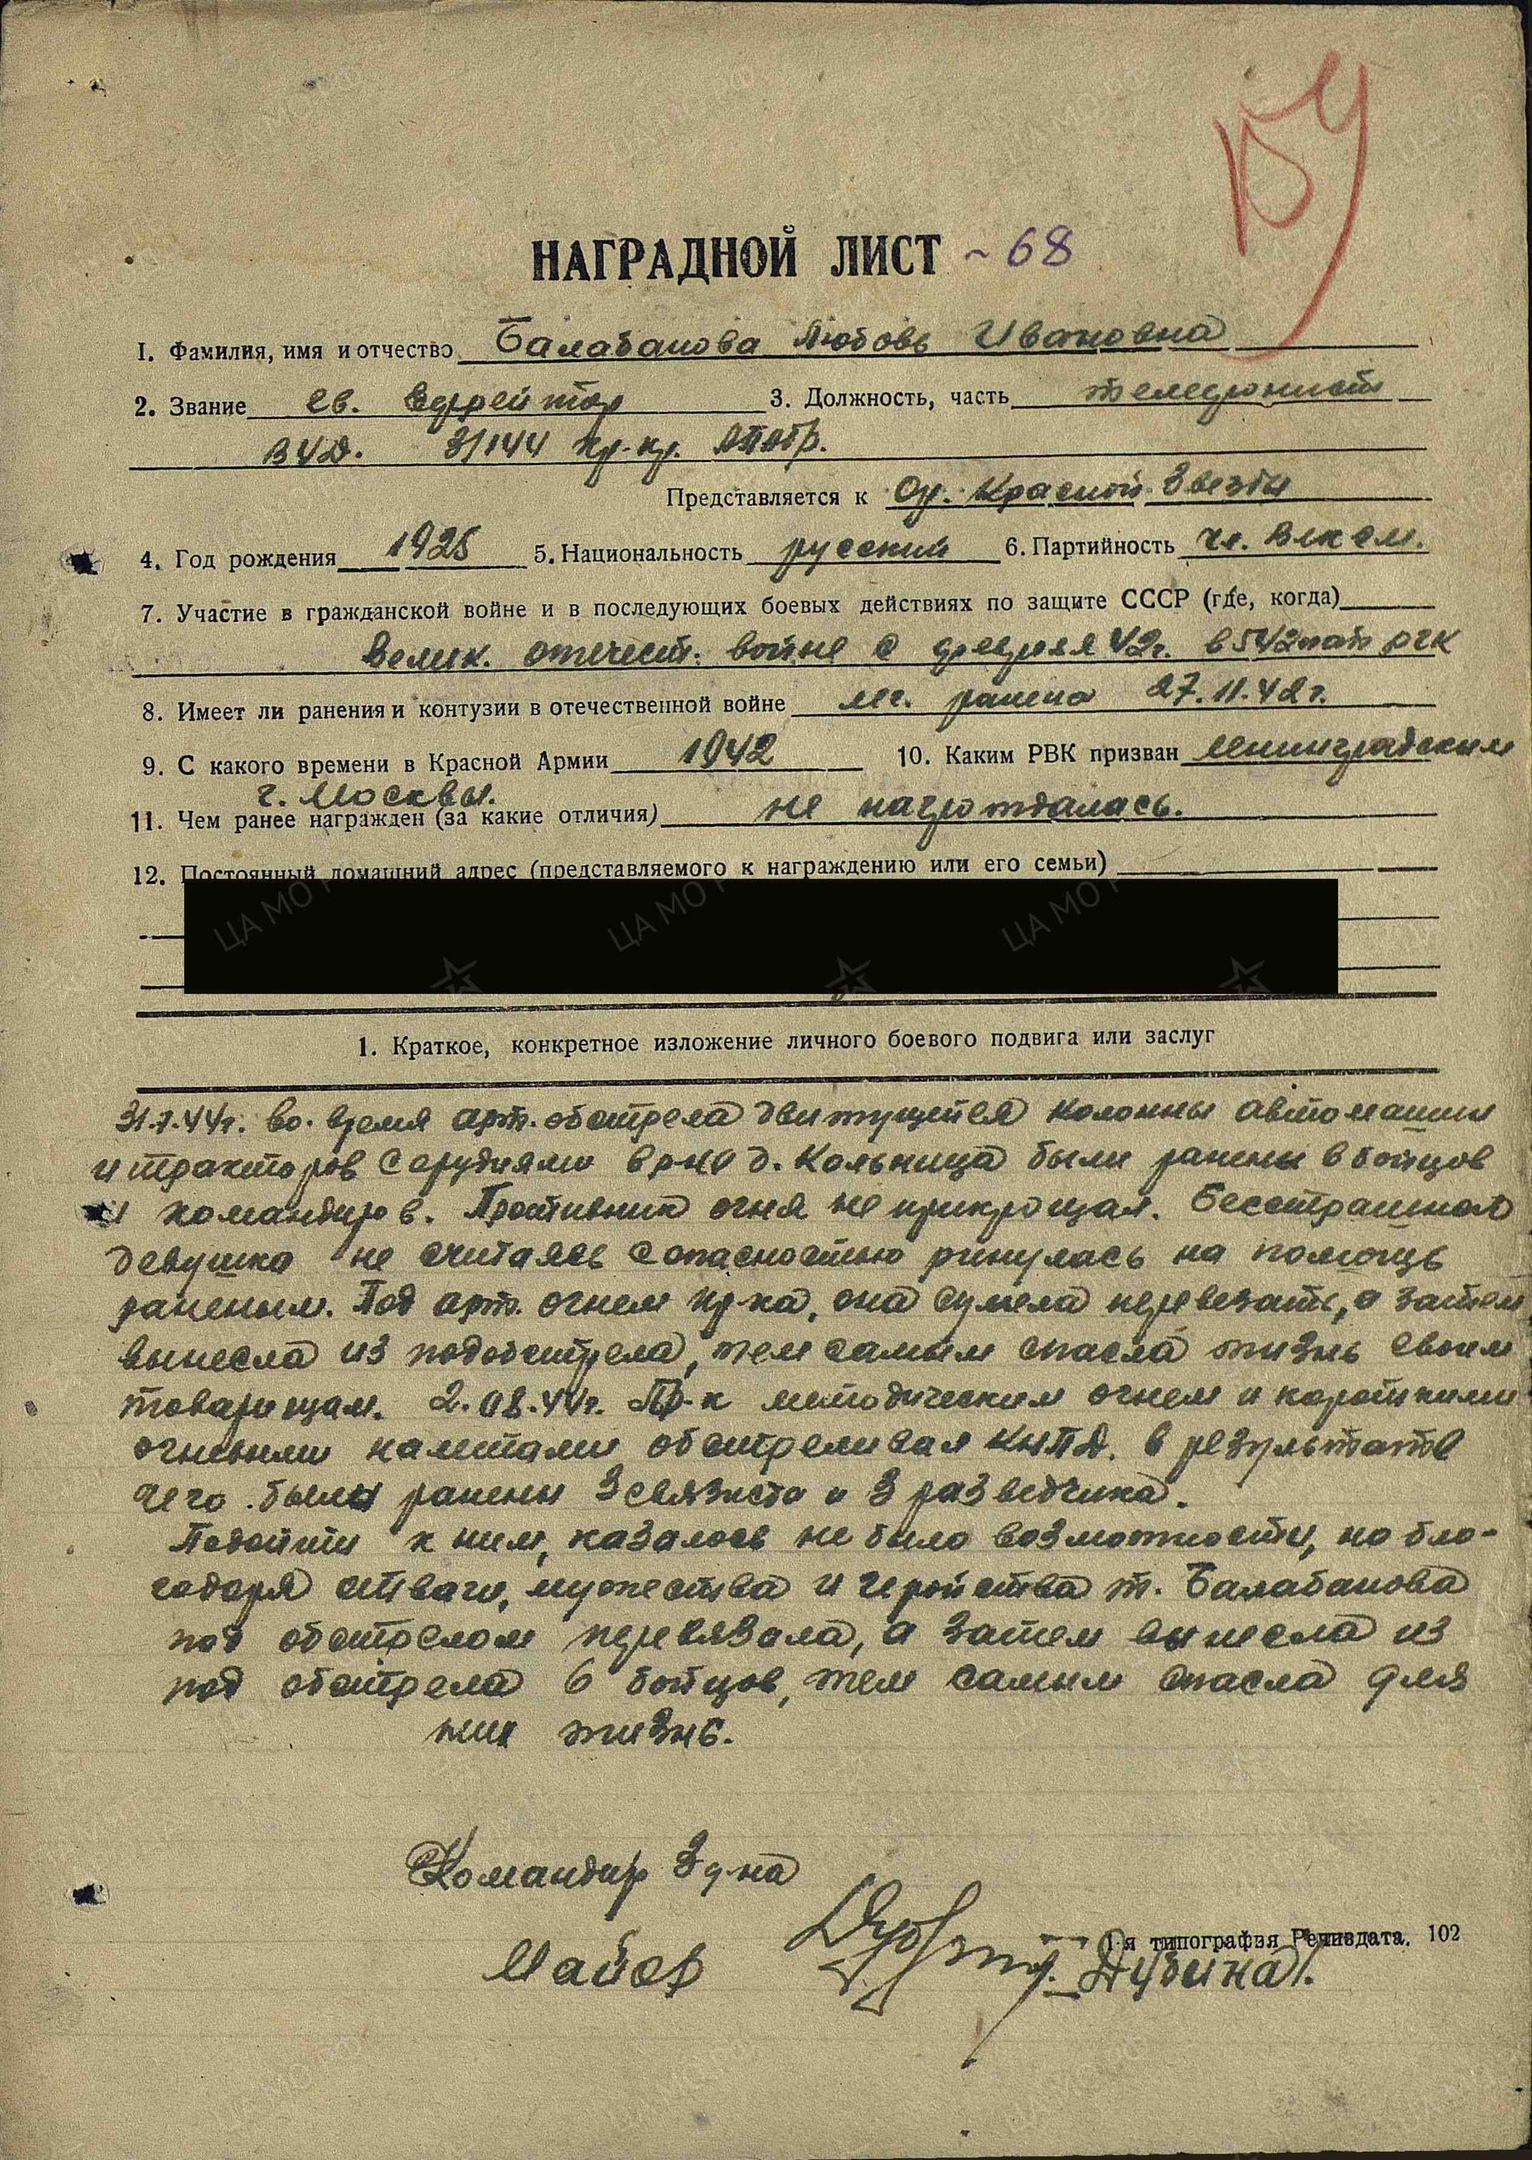 БУ
НАГРАДНОЙ ЛИСТ ~ 68
1. Фамилия, имя и отчество Балабанова Любовь Ивановна
2. Звание гв. Ефрейтор 3. Должность, часть телефонист
ВУД. 3/144 АПАБР.
Представляется к Ор. Красной Звезды
4. Год рождения 1925 5. Национальность русский 6. Партийность чл. Влксм.
7. Участие в гражданской войне и в последующих боевых действиях по защите СССР (где, когда)
Велик. отечест. войне с февраля 42г. в 542 пап ргк
8. Имеет ли ранения и контузии в отечественной войне лег. ранена 27.11.42г.
9. С какого времени в Красной Армии 1942 10. Каким РВК призван Ленинградским
г. Москвы.
11. Чем ранее награжден (за какие отличия) не награждалась.
12. Постоянный домашний адрес (представляемого к награждению или его семьи)
1. Краткое, конкретное изложение личного боевого подвига или заслуг
31.7.44г. во. время арт. обстрела движущейся колонны автомашин
и тракторов с орудиями в р-не д. Кольница были ранены 8 бойцов
и командиров. Противник огня не прикрощал. Бесстрашная
девушка не считаясь с опасностью ринулась на помощь
раненым. Под арт. огнем пр-ка, она сумела перевезать, а затем
вынесла из подобстрела, тем самым спасла жизнь своим
товарищам. 2.08.44г. Пр-к методическим огнем и короткими
огневыми налетами обстреливал КНПД. в результате
чего были ранены 3 связиста и 3 разведчика.
Подойти к ним, казалось не было возможности, но бла-
годаря отваги, мужества и геройства т. Балабанова
под обстрелом перевязала, а затем вынесла из
под обстрела 6 бойцов, тем самым спасла для
них жизнь.
Командир 3 д-на
Майор /Дубина/.
1-я типография Речиздата. 102
ЦА МО РФ